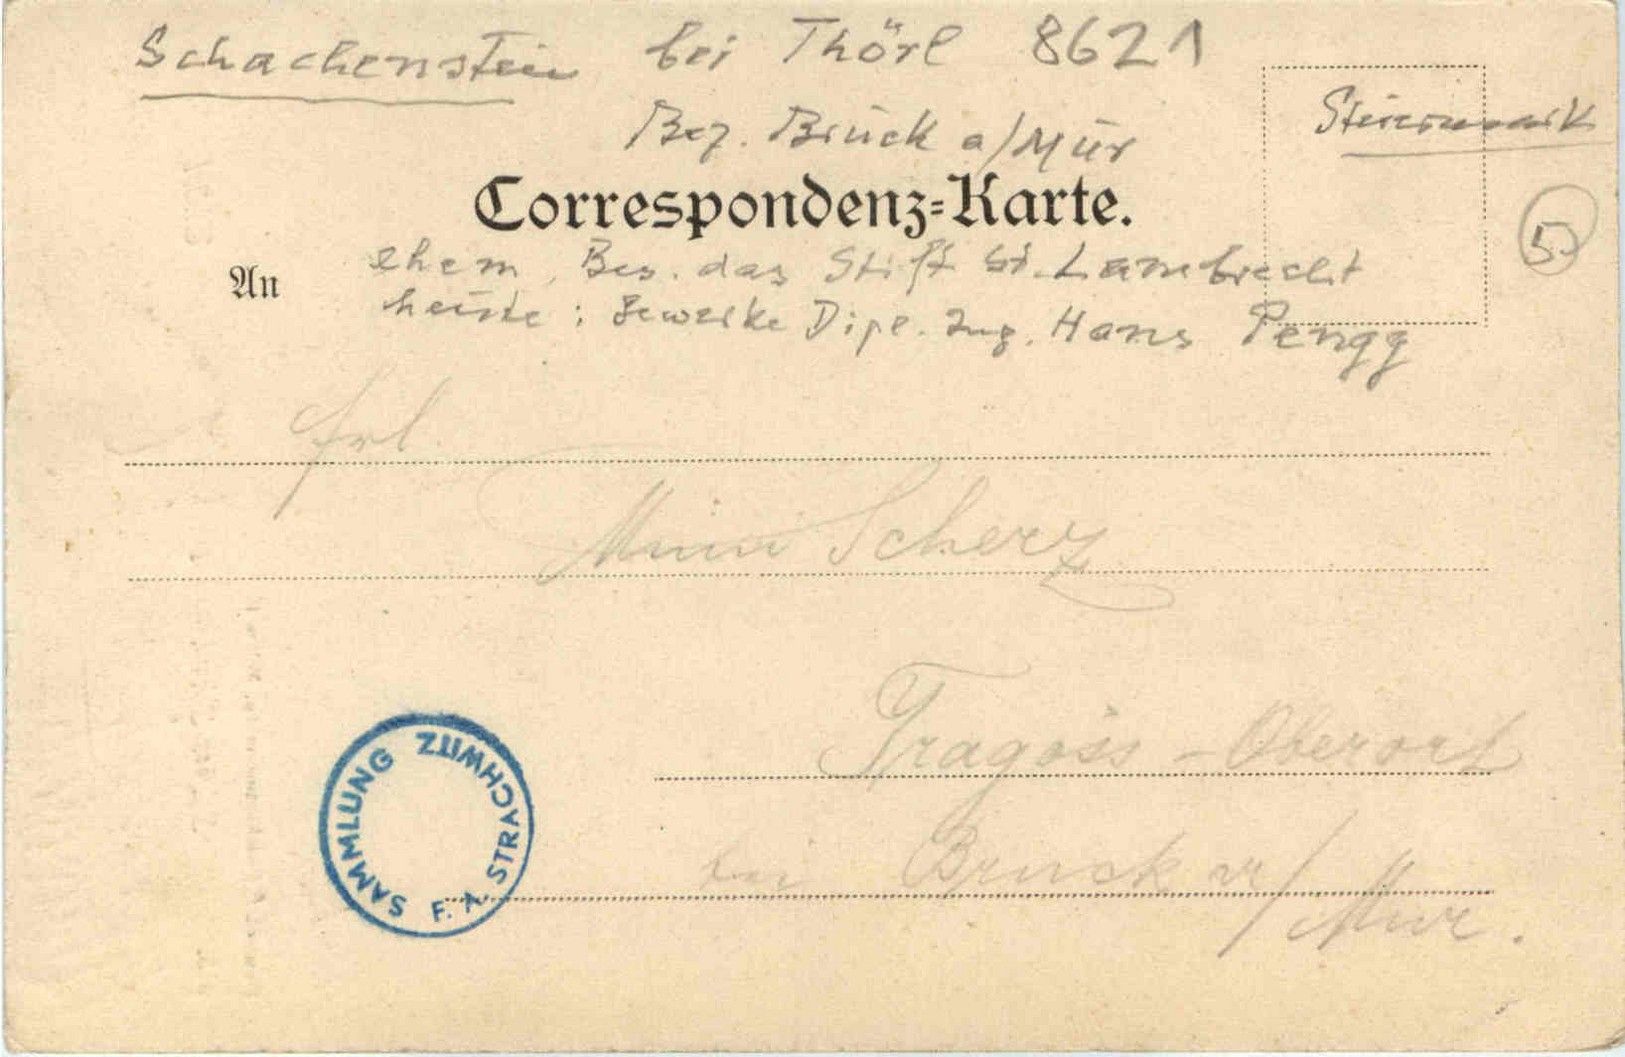 Schachenstein bei Thörl 8621
Steiermark
Bez. Bruck a/Mur
Correspondenz-Karte.
5
An
ehem. Bes. das Stift St. Lambrecht
heute: Gewerke Dipl. Ing. Hans Pengg
Frl.
Mini Scherz
Tragöss-Oberort
bei Bruck a/Mur.
SAMMLUNG F. A. STRACHWITZ